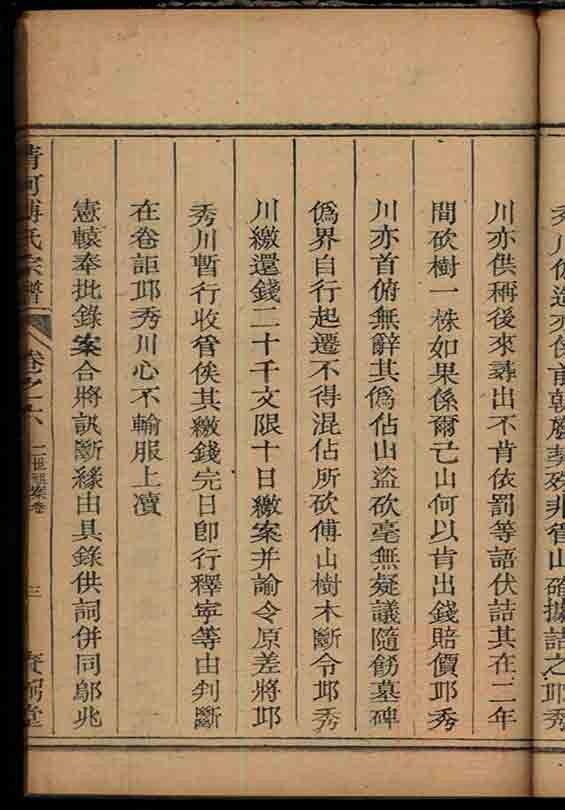 秀川偽造亦係前朝廢契殊非管山確據詰之邱秀
川亦供稱後來尋出不肯依罰等語伏詰其在三年
間砍樹一株如果係爾己山何以肯出錢賠價邱秀
川亦首俯無辭其偽佔山盜砍毫無疑議隨飭墓碑
偽界自行起遷不得混佔所砍傅山樹木斷令邱秀
川繳還錢二十千文限十日繳案并諭令原差將邱
秀川暫行收管俟其繳錢完日卽行釋寧等由判斷
在卷詎邱秀川心不輸服上瀆
憲轅奉批錄案合將訊斷緣由具錄供詞併同鄔兆
清河傅氏宗譜 卷之六 二世祖案卷 三 賚弼堂